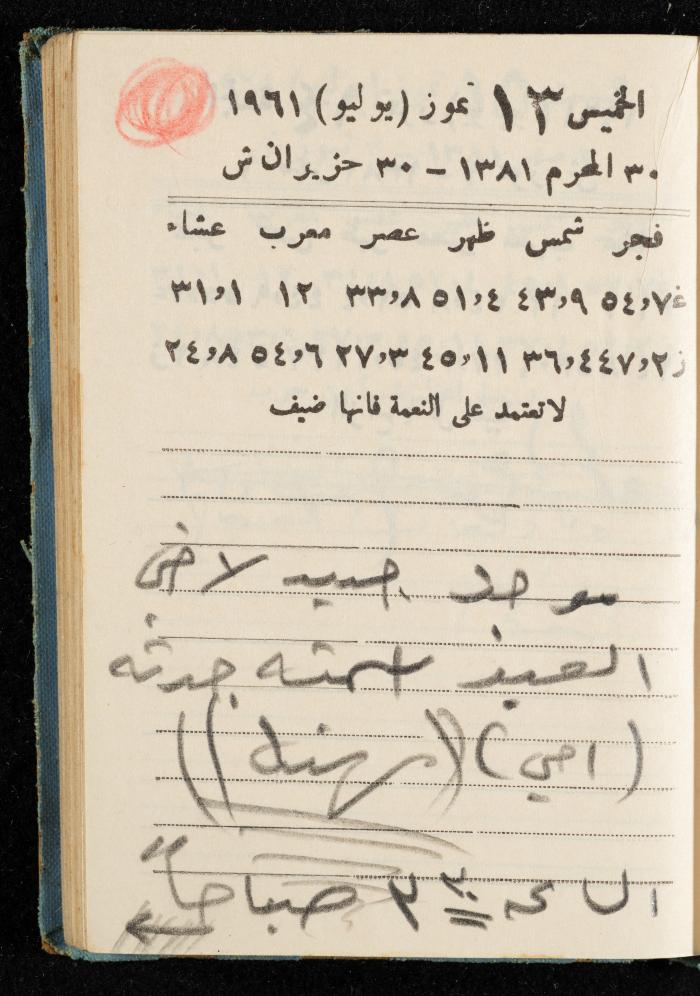 الخميس ١٣ تموز (يوليو) ١٩٦١
٣٠ المحرم ١٣٨١ – ٣٠ حزيران ش
فجر شمس ظهر عصر مغرب عشاء
غ ٧,٥٤ ٩,٤٣ ٤,٥١ ٨,٣٣ ١٢ ١,٣١
ز ٢,٤٤٧,٣٦ ١١,٤٥ ٣,٢٧ ٦,٥٤ ٨,٢٤
لا تعتمد على النعمة فانها ضيف
جديد لاخي
اسمته جدته
(امي) ((مهند))
الساعة ٣ صباحاً